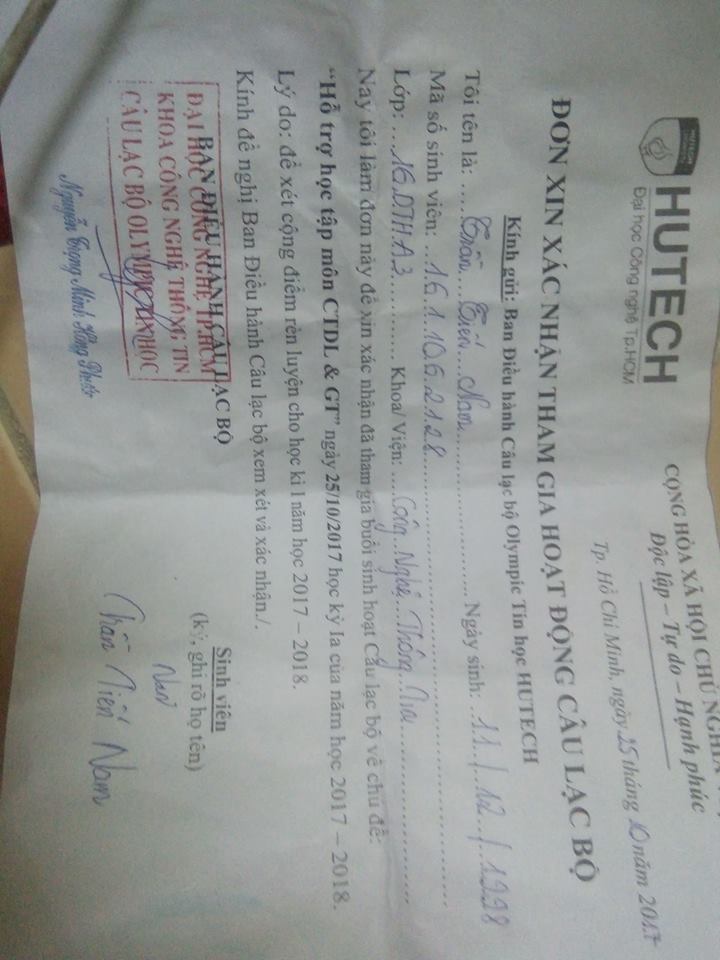 HUTECH
Đại học Công nghệ Tp.HCM
CỘNG HÒA XÃ HỘI CHỦ NGHĨA
Độc lập – Tự do – Hạnh phúc
Tp. Hồ Chí Minh, ngày 25 tháng 10 năm 2017
ĐƠN XIN XÁC NHẬN THAM GIA HOẠT ĐỘNG CÂU LẠC BỘ
Kính gửi: Ban Điều hành Câu lạc bộ Olympic Tin học HUTECH
Tôi tên là: Trần Tiến Nam Ngày sinh: 11/12/1998
Mã số sinh viên: 1611062128
Lớp: 16DTHA3 Khoa/ Viện: Công Nghệ Thông Tin
Nay tôi làm đơn này để xin xác nhận đã tham gia buổi sinh hoạt Câu lạc bộ về chủ đề:
“Hỗ trợ học tập môn CTDL & GT” ngày 25/10/2017 học kỳ 1a của năm học 2017 – 2018.
Lý do: để xét cộng điểm rèn luyện cho học kì 1 năm học 2017 – 2018.
Kính đề nghị Ban Điều hành Câu lạc bộ xem xét và xác nhận./.
BAN ĐIỀU HÀNH CÂU LẠC BỘ
ĐẠI HỌC CÔNG NGHỆ TP.HCM
KHOA CÔNG NGHỆ THÔNG TIN
CÂU LẠC BỘ OLYMPIC TIN HỌC
Nguyễn Trọng Minh Hồng Phước
Sinh viên
(ký, ghi rõ họ tên)
Nam
Trần Tiến Nam